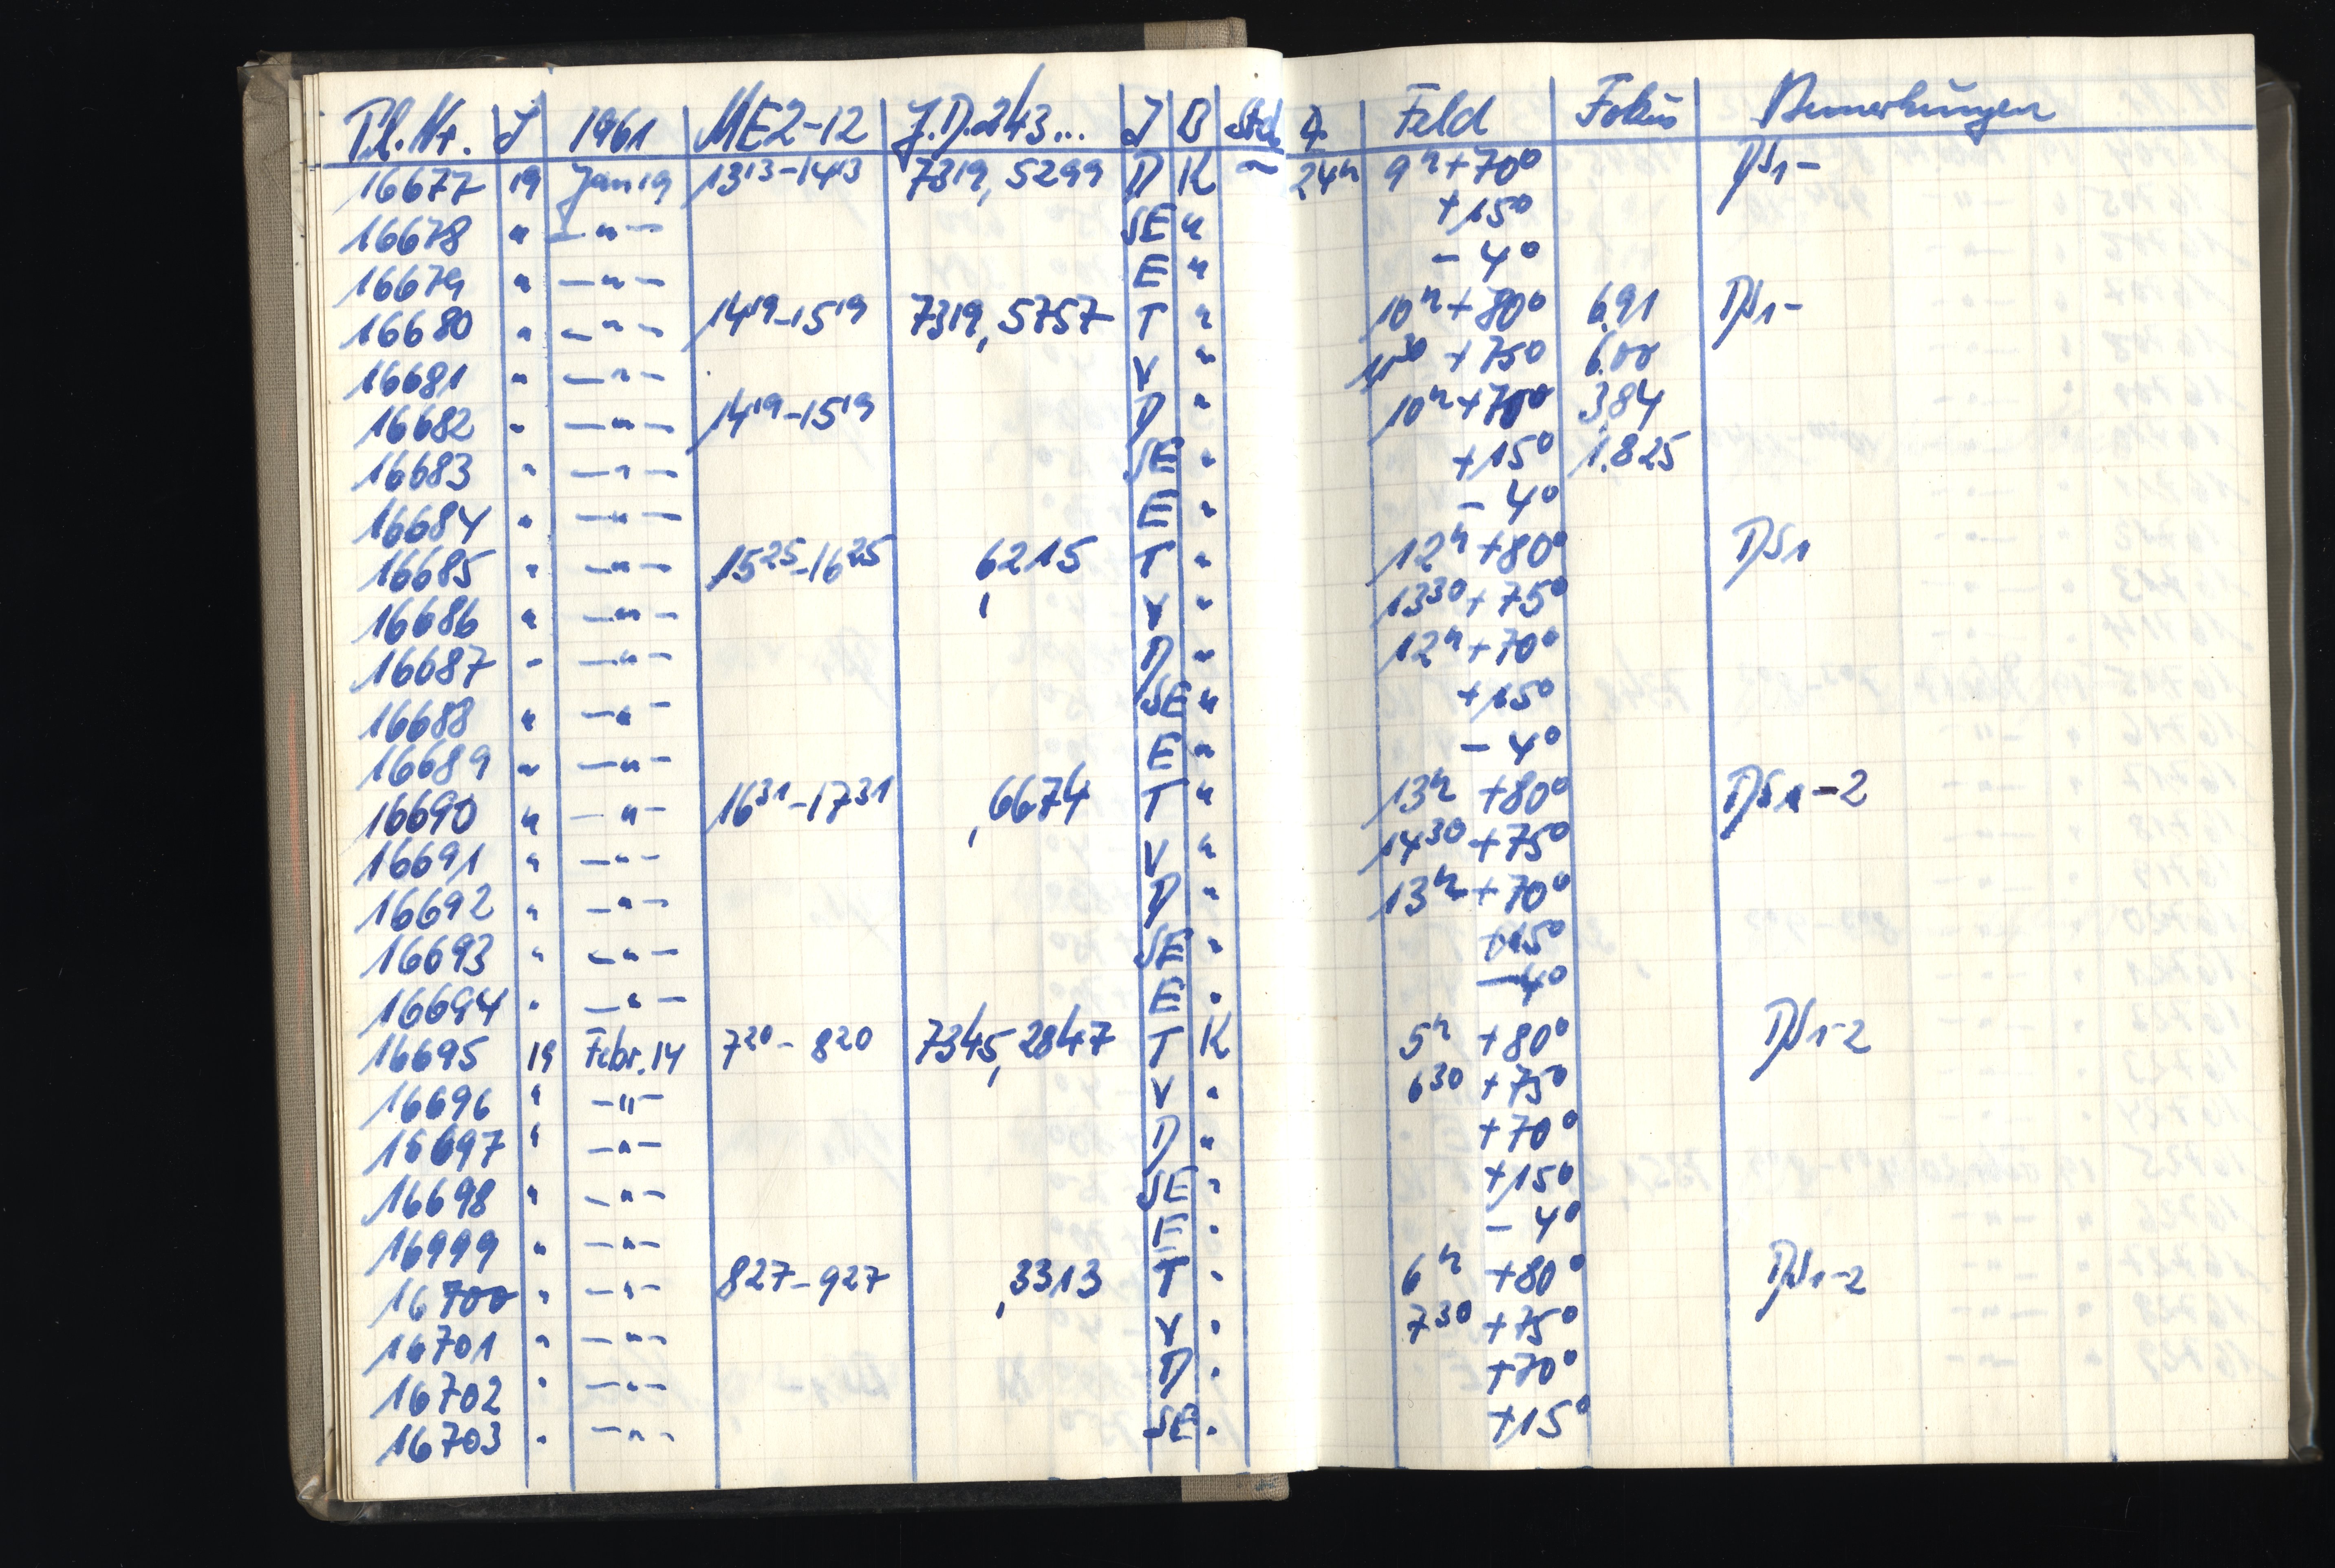 Pl. Nr. J 1961 ME2-12 J.D.243... J B Std. Feld Fokus Bemerkungen
16677 19 Jan 19 13¹³-14¹³ 7319,5299 D K 24ʰ 9ʰ+70° DS1-
16678 " -"- SE " +15°
16679 " -"- E " -4°
16680 " -"- 14¹⁹-15¹⁹ 7319,5757 T " 10ʰ+80° 6,91 DS1-
16681 " -"- V " 11³⁰ +75° 6,00
16682 " -"- 14¹⁹-15¹⁹ D " 10ʰ+70° 3,84
16683 " -"- SE " +15° 1,825
16684 " -"- E " -4°
16685 " -"- 15²⁵-16²⁵ ,6215 T " 12ʰ+80° DS1
16686 " -"- V " 13³⁰+75°
16687 " -"- D " 12ʰ+70°
16688 " -"- SE " +15°
16689 " -"- E " -4°
16690 " -"- 16³¹-17³¹ ,6674 T " 13ʰ +80° DS1-2
16691 " -"- V " 14³⁰ +75°
16692 " -"- D " 13ʰ +70°
16693 " -"- SE " +15°
16694 " -"- E " -4°
16695 19 Febr.14 7²⁰-8²⁰ 7345,2847 T K 5ʰ +80° DS1-2
16696 " -"- V " 6³⁰ +75°
16697 " -"- D " +70°
16698 " -"- SE " +15°
16999 " -"- E " -4°
16700 " -"- 8²⁷-9²⁷ ,3313 T " 6ʰ +80° DS1-2
16701 " -"- V " 7³⁰ +75°
16702 " -"- D " +70°
16703 " -"- SE " +15°